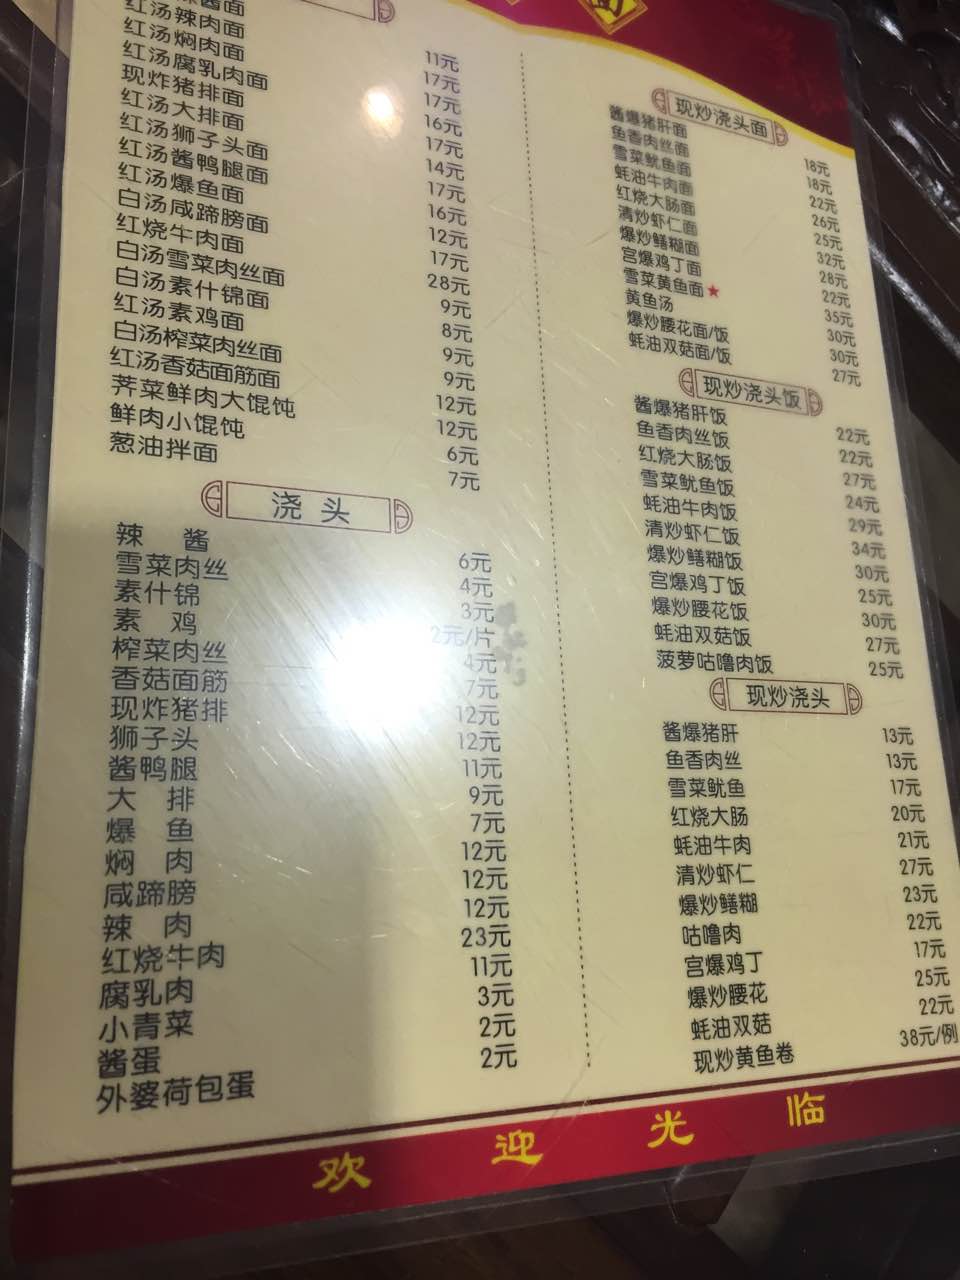 辣酱面 11元
红汤辣肉面 17元
红汤焖肉面 17元
红汤腐乳肉面 16元
现炸猪排面 17元
红汤大排面 14元
红汤狮子头面 17元
红汤酱鸭腿面 16元
红汤爆鱼面 12元
白汤咸蹄膀面 17元
红烧牛肉面 28元
白汤雪菜肉丝面 9元
白汤素什锦面 8元
红汤素鸡面 9元
白汤榨菜肉丝面 9元
红汤香菇面筋面 12元
荠菜鲜肉大馄饨 12元
鲜肉小馄饨 6元
葱油拌面 7元
浇头
辣酱 6元
雪菜肉丝 4元
素什锦 3元
素鸡 2元/片
榨菜肉丝 4元
香菇面筋 7元
现炸猪排 12元
狮子头 12元
酱鸭腿 11元
大排 9元
爆鱼 7元
焖肉 12元
咸蹄膀 12元
辣肉 12元
红烧牛肉 23元
腐乳肉 11元
小青菜 3元
酱蛋 2元
外婆荷包蛋 2元
现炒浇头面
酱爆猪肝面 18元
鱼香肉丝面 18元
雪菜鱿鱼面 22元
蚝油牛肉面 26元
红烧大肠面 25元
清炒虾仁面 32元
爆炒鳝糊面 28元
宫爆鸡丁面 22元
雪菜黄鱼面★ 35元
黄鱼汤 30元
爆炒腰花面/饭 30元
蚝油双菇面/饭 27元
现炒浇头饭
酱爆猪肝饭 22元
鱼香肉丝饭 22元
红烧大肠饭 27元
雪菜鱿鱼饭 24元
蚝油牛肉饭 29元
清炒虾仁饭 34元
爆炒鳝糊饭 30元
宫爆鸡丁饭 25元
爆炒腰花饭 30元
蚝油双菇饭 27元
菠萝咕噜肉饭 25元
现炒浇头
酱爆猪肝 13元
鱼香肉丝 13元
雪菜鱿鱼 17元
红烧大肠 20元
蚝油牛肉 21元
清炒虾仁 27元
爆炒鳝糊 23元
咕噜肉 22元
宫爆鸡丁 17元
爆炒腰花 25元
蚝油双菇 22元
现炒黄鱼卷 38元/例
欢迎光临